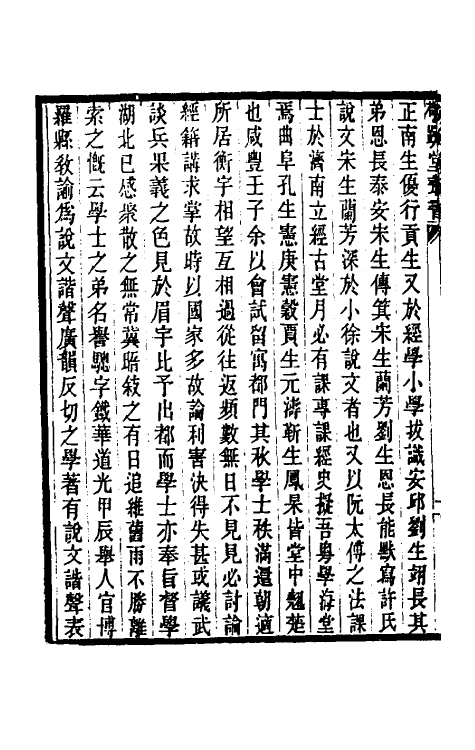 正南生優行貢生又於經學小學拔識安邱劉生翊長其
弟恩長泰安宋生傳箕宋生蘭芳劉生恩長能默寫許氏
說文宋生蘭芳深於小徐說文者也又以阮太傅之法課
士於濟南立經古堂月必有課專課經史擬吾粵學海堂
焉曲阜孔生憲庚憲穀賈生元濤靳生鳳杲皆堂中翹楚
也咸豐壬子余以會試留寓都門其秋學士秩滿還朝適
所居衡宇相望互相過從往返頻數無日不見見必討論
經籍講求掌故時以國家多故論利害決得失甚或議武
談兵果義之色見於眉宇比予出都而學士亦奉旨督學
湖北已感聚散之無常冀晤敘之有日追維舊雨不勝離
索之慨云學士之弟名譽驄字鐵華道光甲辰舉人官博
羅縣教諭為說文諧聲廣韻反切之學著有說文諧聲表